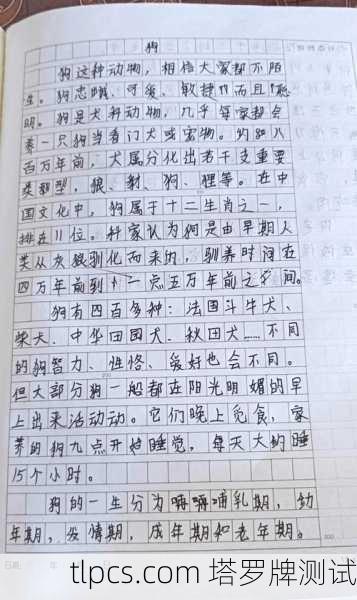 狗
狗这种动物，相信大家都不陌
生。狗忠诚、可爱、敏捷，而且聪
明。狗是犬科动物，几乎每家都会
养一只狗当看门犬或宠物。约八
百万年前，犬属分化出若干支重要
类型，狼、豺、狗、狸等。在中
国文化中，狗属于十二生肖之一，
排在11位。科家认为狗是由早期人
类从灰狼驯化而来的，驯养时间在
四万年前到一点五万年前之间。
狗有四百多种：法国斗牛犬、
柴犬、中华田园犬、秋田犬……不同
的狗智力、性格、爱好也会不同。
但大部分狗一般都在阳光明媚的早
上出来活动动。它们晚上觅食，家
养的狗九点开始睡觉，每天大约睡
15个小时。
狗的一生分为哺乳期，幼
年期，发情期，成年期和老年期。
tlpcs.com 塔罗牌测试